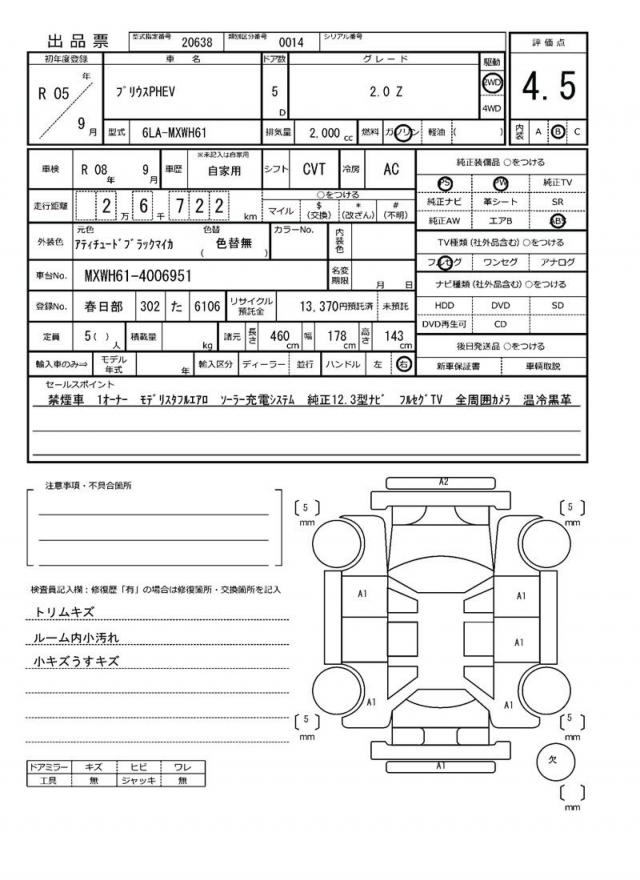 出品票 型式指定番号 20638 類別区分番号 0014 シリアル番号
評価点
4.5
内装 A B C
初年度登録 車名 ドア数 グレード 駆動
R 05 年 9 月 プリウスPHEV 5 D 2.0 Z 2WD 4WD
型式 6LA-MXWH61 排気量 2,000 cc 燃料 ガソリン 軽油 ( )
車検 R 08 年 9 月 車歴 ※未記入は自家用 自家用 シフト CVT 冷房 AC
走行距離 2 万 6 千 7 2 2 km
○をつける
マイル $ (交換) * (改ざん) # (不明)
外装色 元色 アティチュードブラックマイカ 色替 ( 色替無 ) カラーNo. 内装色
車台No. MXWH61-4006951 名変期限 月 日
登録No. 春日部 302 た 6106 リサイクル預託金 13,370円預託済 未預託
定員 5( ) 人 積載量 kg 諸元 長さ 460 cm 幅 178 cm 高さ 143 cm
輸入車のみ⇒ モデル年式 年 輸入区分 ディーラー 並行 ハンドル 左 右
純正装備品 ○をつける
PS PW 純正TV
純正ナビ 革シート SR
純正AW エアB ABS
TV種類(社外品含む) ○をつける
フルセグ ワンセグ アナログ
ナビ種類(社外品含む) ○をつける
HDD DVD SD
DVD再生可 CD
後日発送品 ○をつける
新車保証書 車輌取説
セールスポイント
禁煙車 1オーナー モデリスタフルエアロ ソーラー充電システム 純正12.3型ナビ フルセグTV 全周囲カメラ 温冷黒革
注意事項・不具合箇所
検査員記入欄:修復歴「有」の場合は修復箇所・交換箇所を記入
トリムキズ
ルーム内小汚れ
小キズうすキズ
ドアミラー キズ ヒビ ワレ
工具 無 ジャッキ 無
A2
[ 5 ] mm
[ 5 ] mm
A1
A1
A1
A1
A1
[ 5 ] mm
[ 5 ] mm
A1
欠
[ ] mm